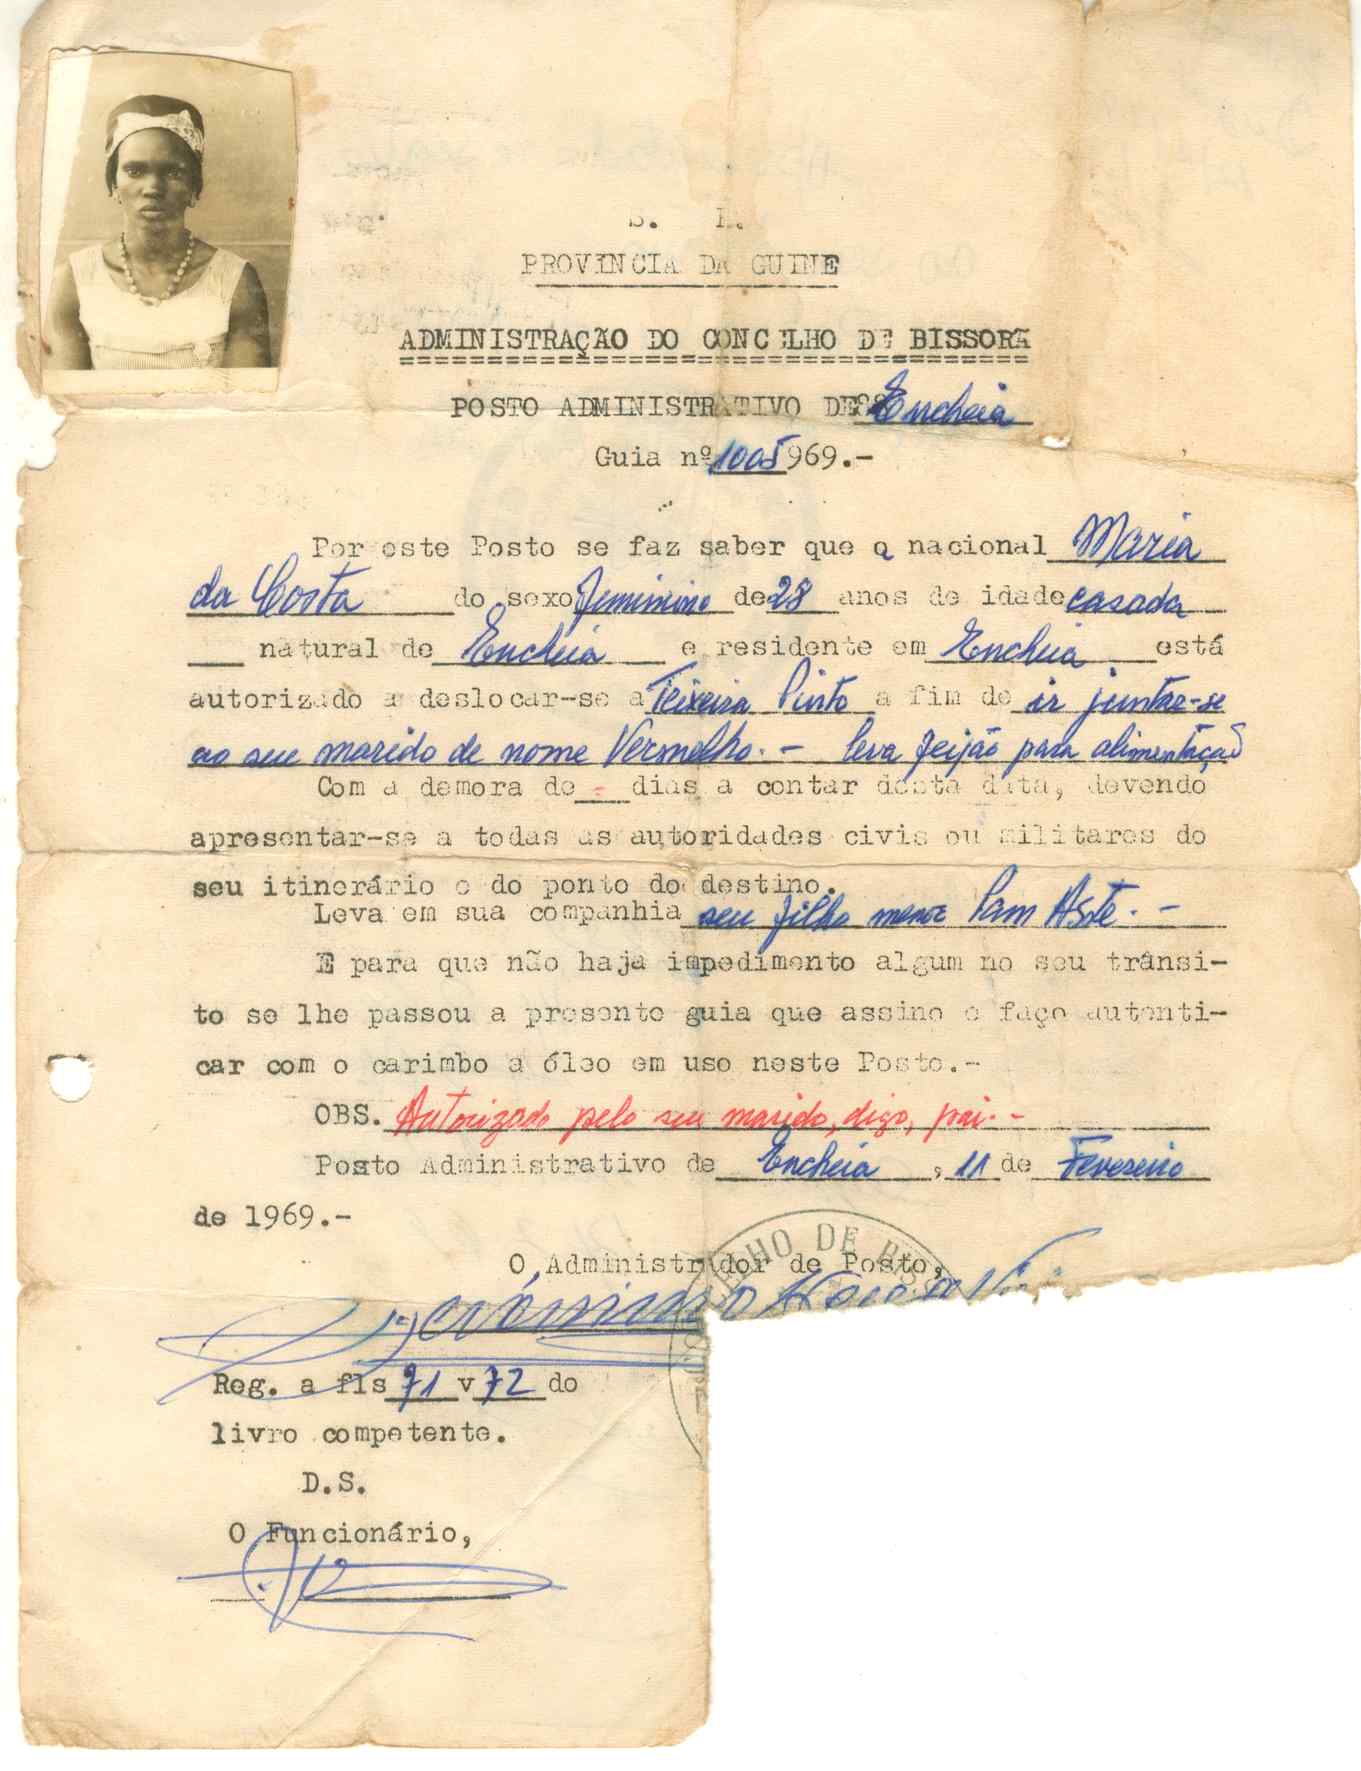 S. R.
PROVINCIA DA GUINE
ADMINISTRAÇÃO DO CONCELHO DE BISSORÃ
POSTO ADMINISTRATIVO DE Encheia
Guia nº 1005 969.-
Por este Posto se faz saber que a nacional Maria
da Costa do sexo feminino de 28 anos de idade casada
natural de Encheia e residente em Encheia está
autorizado a deslocar-se a Teixeira Pinto a fim de ir juntar-se
ao seu marido de nome Vermelho. - leva feijão para alimentação
Com a demora de - dias a contar desta data, devendo
apresentar-se a todas as autoridades civis ou militares do
seu itinerário e do ponto do destino.
Leva em sua companhia seu filho menor . -
E para que não haja impedimento algum no seu trânsi-
to se lhe passou a presente guia que assino e faço autenti-
car com o carimbo a óleo em uso neste Posto.-
OBS. Autorizado pelo seu marido, digo, pai. -
Posto Administrativo de Encheia, 11 de Fevereiro
de 1969.-
O Administrador de Posto,
LHO DE BISS
Reg. a fls 71 v 72 do
livro competente.
D.S.
O Funcionário,